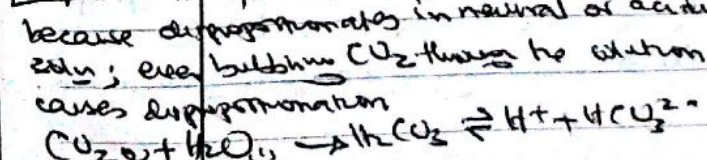 because disproportionates in neutral or acidic
soln; even bubbling CO₂ through the solution
causes disproportionation
CO₂(g) + H₂O(l) → H₂CO₃ ⇌ H⁺ + HCO₃²⁻